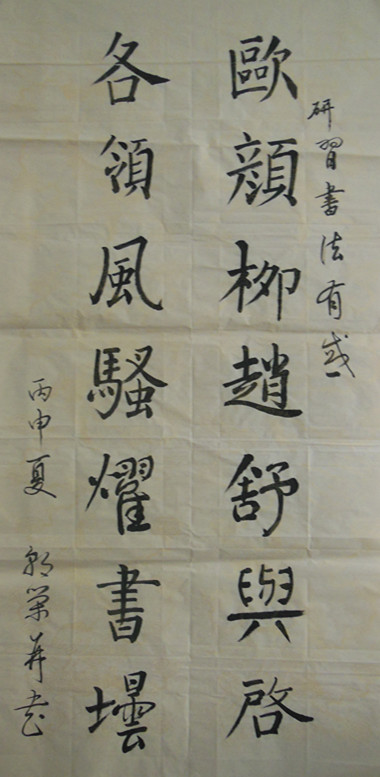 研習書法有感
歐顔柳趙舒與啓
各領風騷燿書壜
丙申夏 書